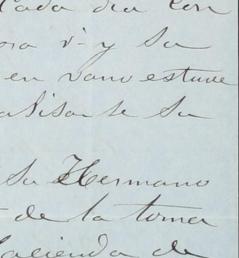 Cada dia con
ora v. y su
en vano estuve
alisarse su
su Hermano
de la toma
Hacienda de